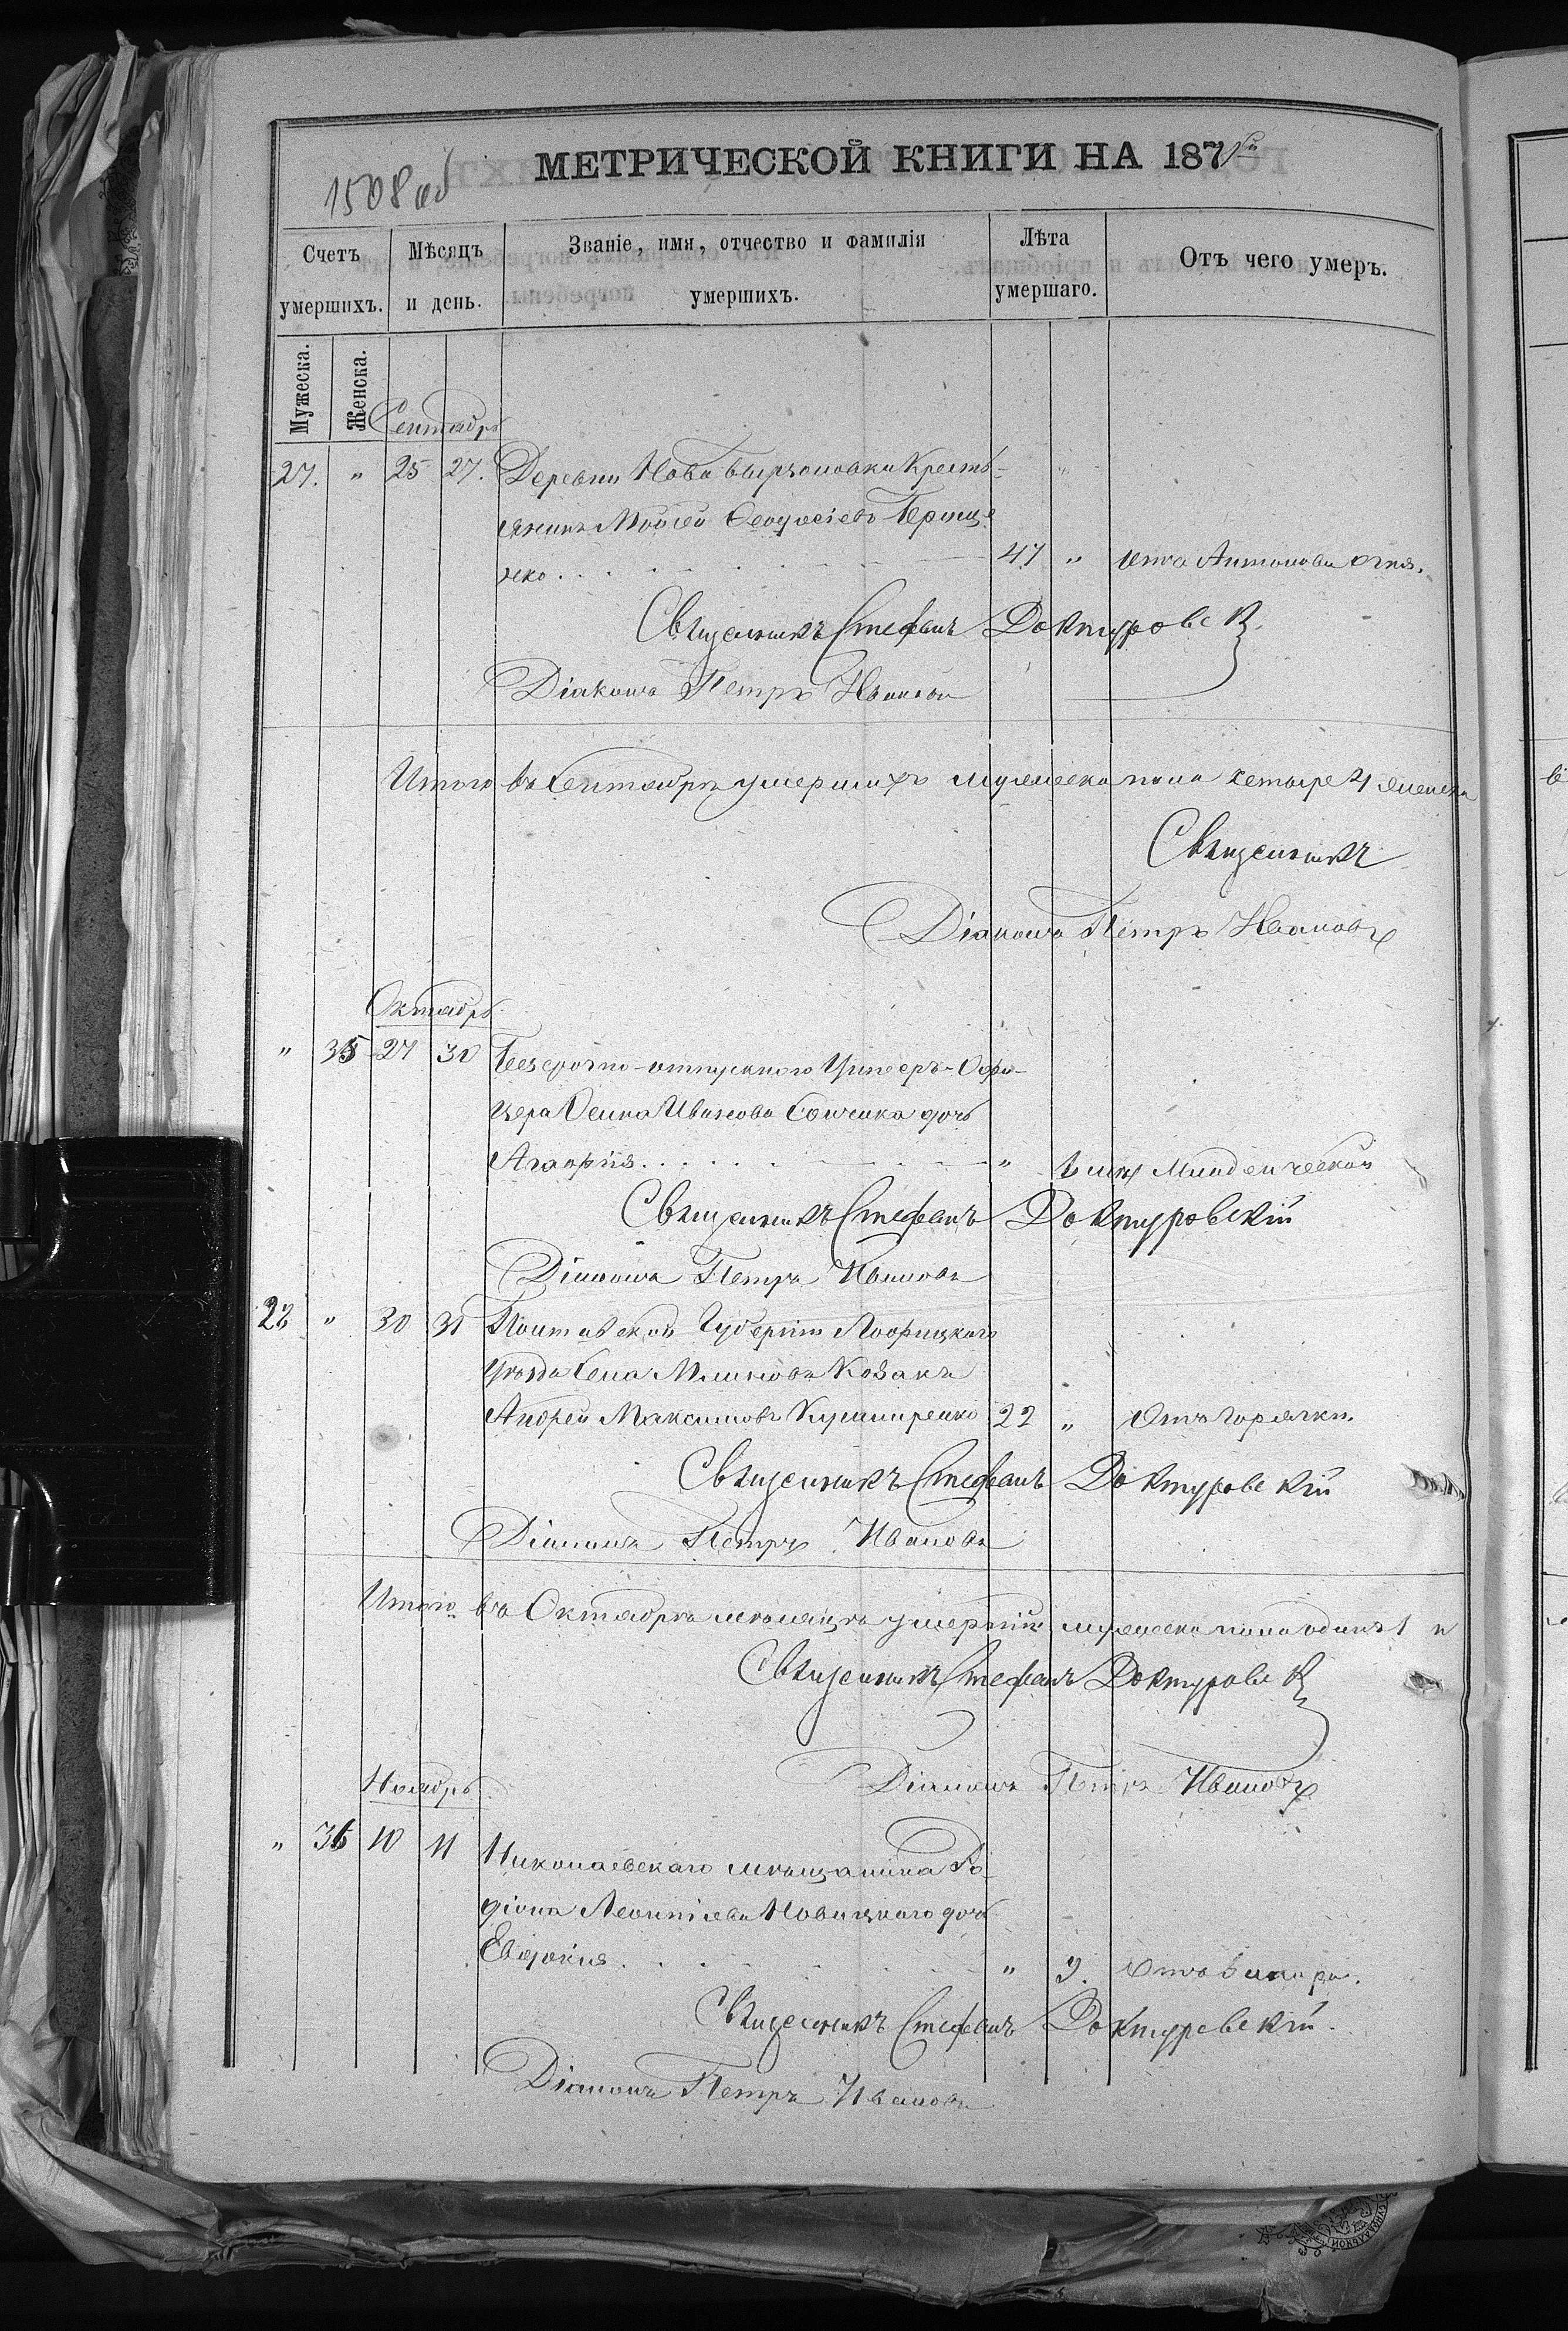 1508 об
МЕТРИЧЕСКОЙ КНИГИ НА 187
Счетъ умершихъ.
Мѣсяцъ и день.
Званіе, имя, отчество и фамилія умершихъ.
Лѣта умершаго.
Отъ чего умеръ.
Мужеска.
Женска.
Сентябрь
27. " 25 27. Деревни Ново Кресть-
янинъ Моисей Феодосіевъ
нко 47 " отъ Антонова огня.
Священникъ Стефанъ Доктуровск
Діаконъ Петръ Ивановъ
Итого въ Сентябрѣ умершихъ мужеска пола четыре 4 женска
Священникъ
Діаконъ Петръ Ивановъ
Октябрь
" 35 27 30 Безсрочно-отпускного Унтеръ-Офи-
цера Иванова дочь
Агафія " младенческой
Священникъ Стефанъ Доктуровскій
Діаконъ Петръ Ивановъ
28 " 30 31 Полтавской Губерніи
Уѣзда Села Козакъ
Андрей Максимовъ Кушниренко 22 " Отъ горячки.
Священникъ Стефанъ Доктуровскій
Діаконъ Петръ Ивановъ
Итого въ Октябрѣ мѣсяцѣ умершихъ мужеска пола одинъ 1 и
Священникъ Стефанъ Доктуровск
Діаконъ Петръ Ивановъ
Ноябрь
" 36 10 11 Николаевскаго мѣщанина Ро-
діона Леонтіева Новицкаго дочь
Евдокія " Отъ
Священникъ Стефанъ Доктуровскій
Діаконъ Петръ Ивановъ